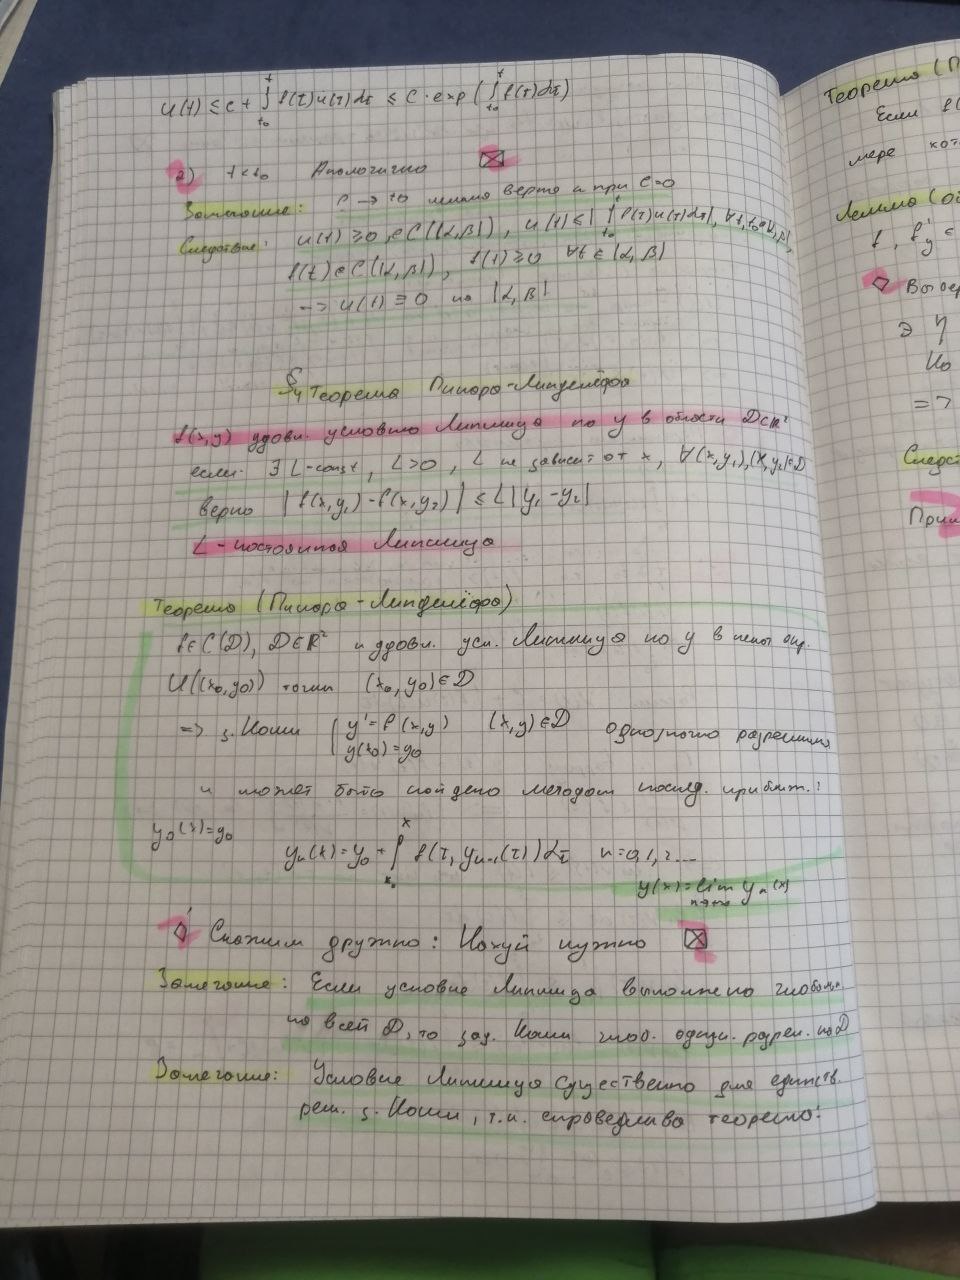 u(t) ≤ c + ∫_{t₀}^{t} f(τ)u(τ)dτ ≤ C·exp(∫_{t₀}^{t} f(τ)dτ)
2) t<t₀ Аналогично ⊠
Замечание: верно и при C=0
Следствие: u(t) ≥0, ∈C(|α,β|), u(t) ≤ |∫_{t₀}^{t} f(τ)u(τ)dτ|, ∀t,t₀∈|α,β|,
f(t)∈C(|α,β|), f(t)≥0 ∀t∈|α,β|
=> u(t)≡0 на |α,β|
§4 Теорема Пикара-Линделёфа
f(x,y) удовл. условию Липшица по y в области D⊂R²
если: ∃ L-const, L>0, L не зависит от x, ∀(x,y₁),(x,y₂)∈D
верно |f(x,y₁)-f(x,y₂)| ≤ L|y₁-y₂|
L - постоянная Липшица
Теорема (Пикара-Линделёфа)
f∈C(D), D∈R² и удовл. усл. Липшица по y в некот окр.
U((x₀,y₀)) точки (x₀,y₀)∈D
=> з. Коши { y'=f(x,y) (x,y)∈D однозначно разрешима
y(x₀)=y₀
и может быть найдено методом послед. приближ.:
y₀(x)=y₀
yₙ(x)=y₀+∫_{x₀}^{x} f(τ,yₙ₋₁(τ))dτ n=0,1,2....
y(x)=lim_{n→∞} yₙ(x)
◊ Скажем дружно: Нахуй нужно ⊠
Замечание: Если условие Липшица выполнено глобально
на всей D, то зад. Коши глоб. однозн. разреш. на D
Замечание: Условие Липшица существенно для единств.
реш. з. Коши, т.к. справедлива теорема:
Теорема (П
Если f(
мере кот
Лемма (об
f, f'_y ∈
◊ Выбер
∃
=>
Следст
Прим